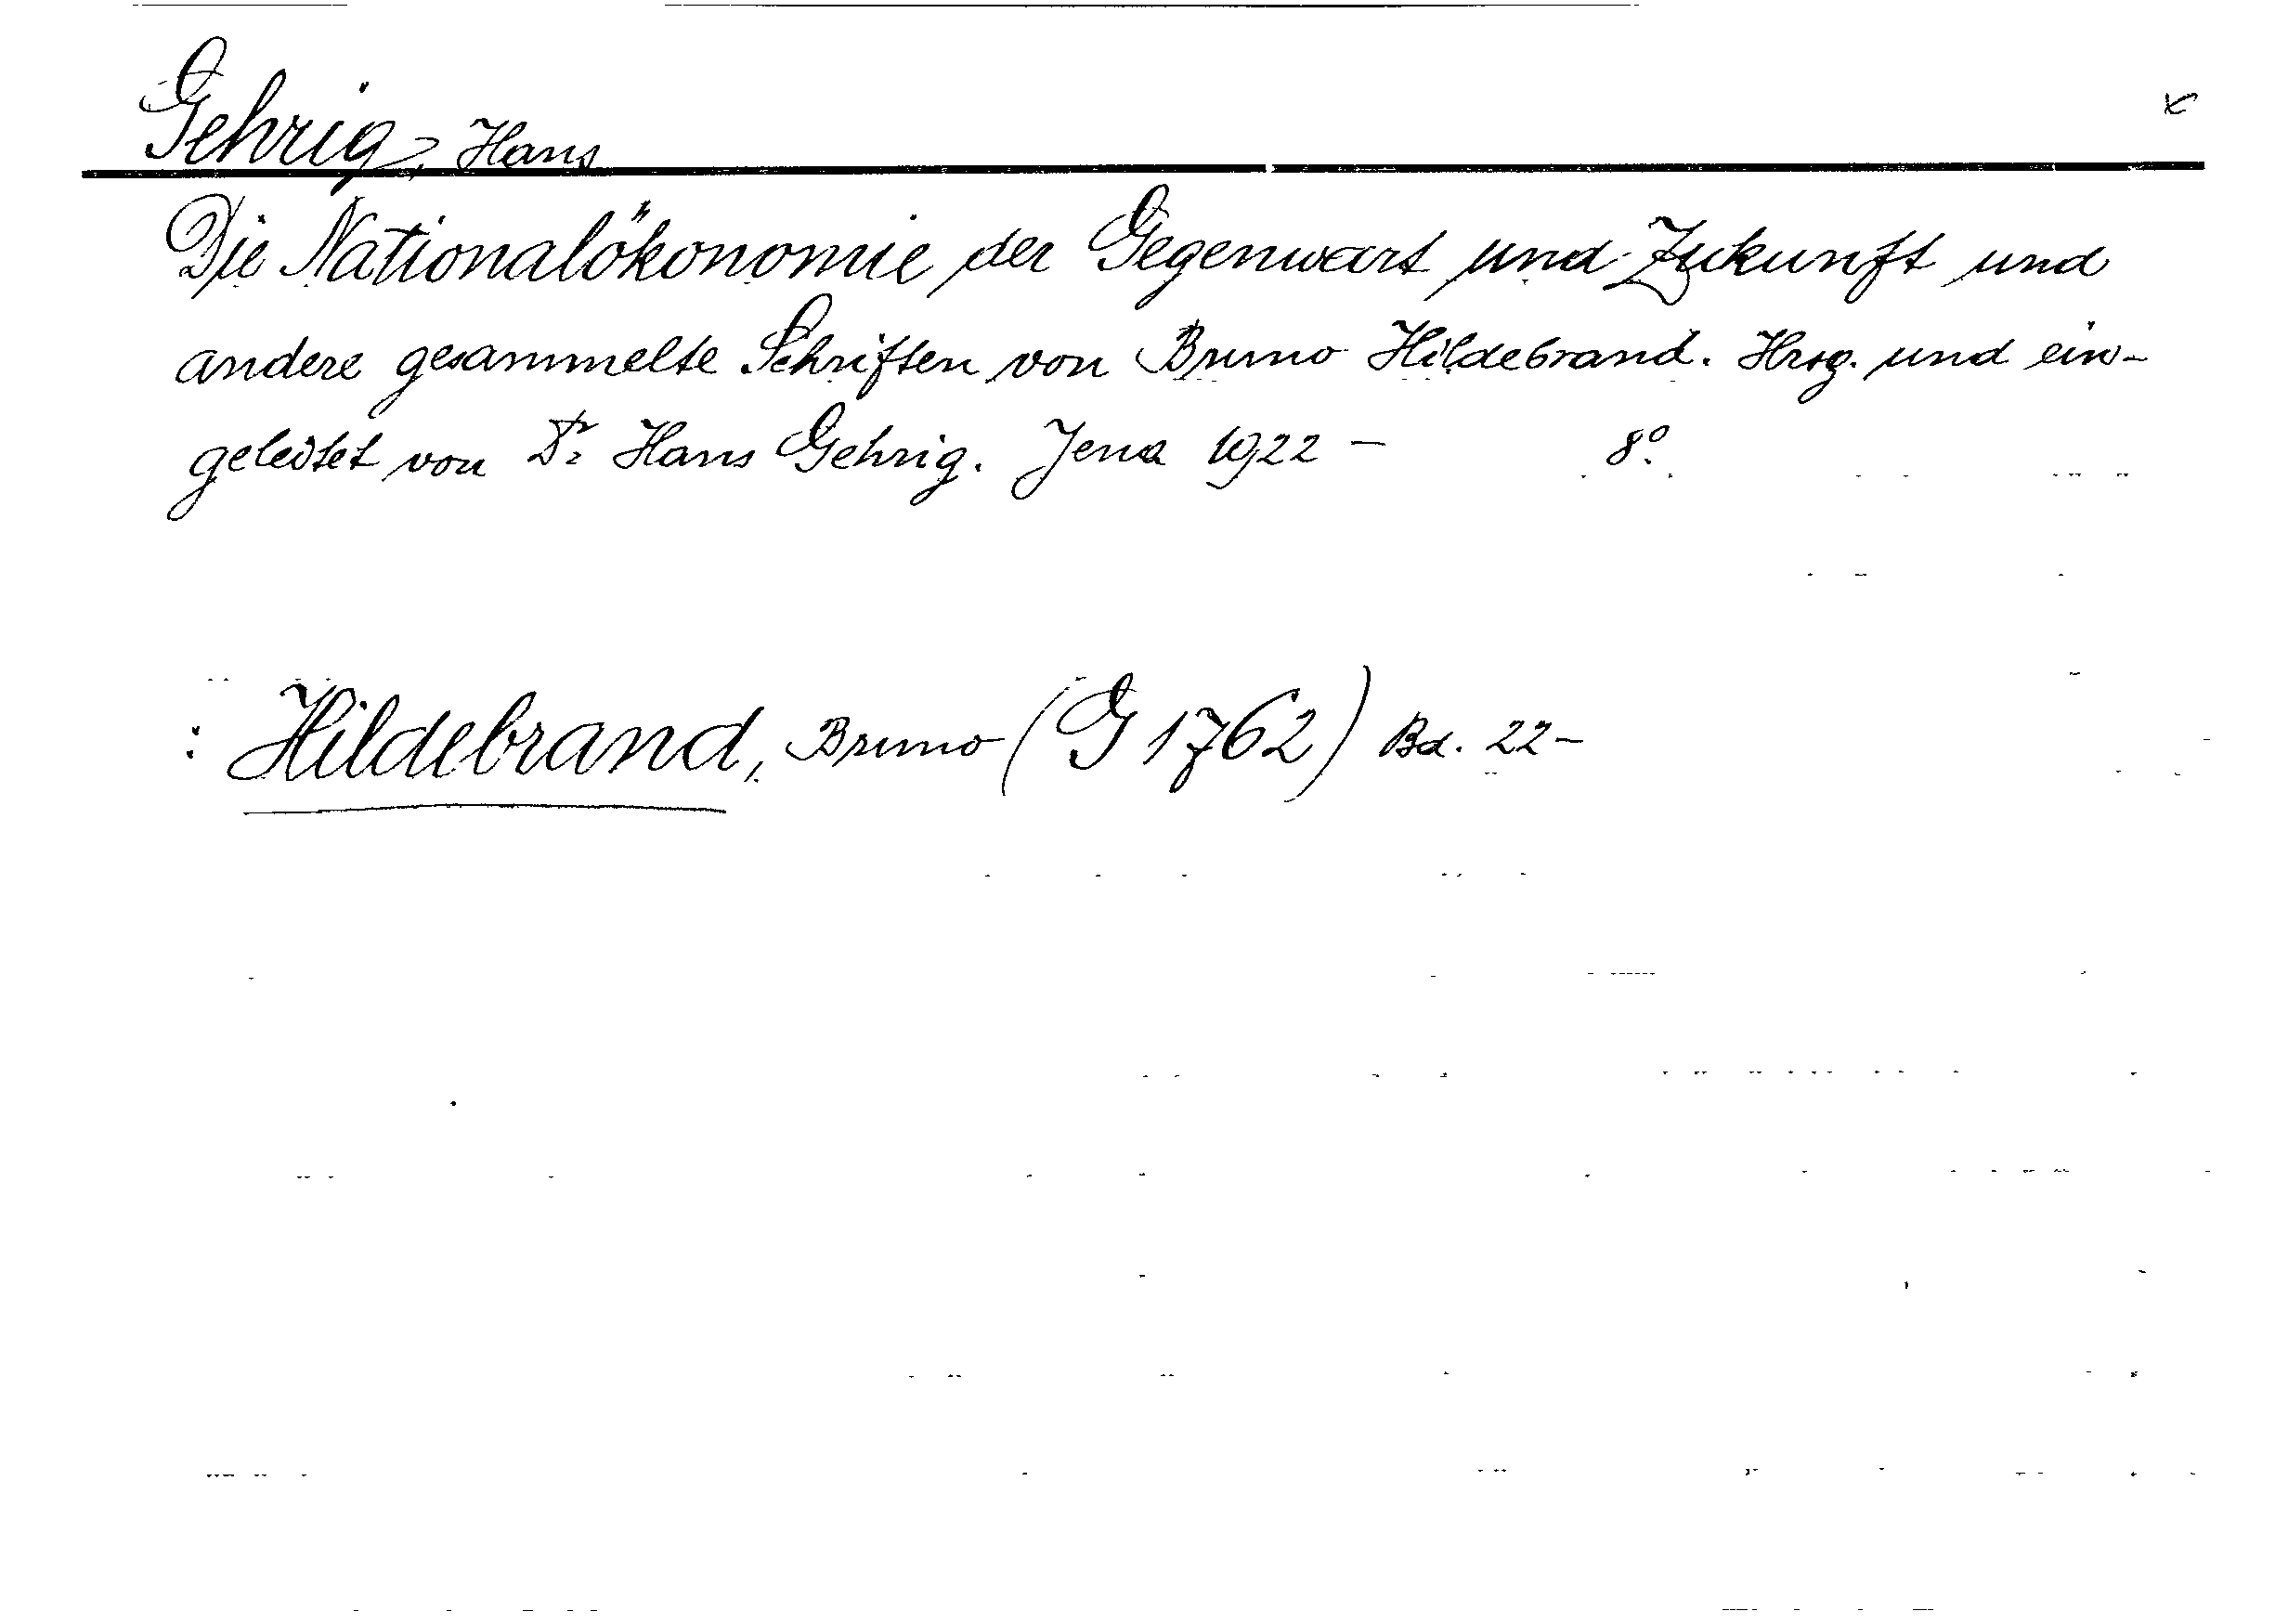 Gehrig, Hans
Die Nationalökonomie der Gegenwart und Zukunft und
andere gesammelte Schriften von Bruno Hildebrand. Hrsg. und ein-
geleitet von Dr Hans Gehrig. Jena 1922 - 8°.
: Hildebrand, Bruno (G 1762) Bd. 22-